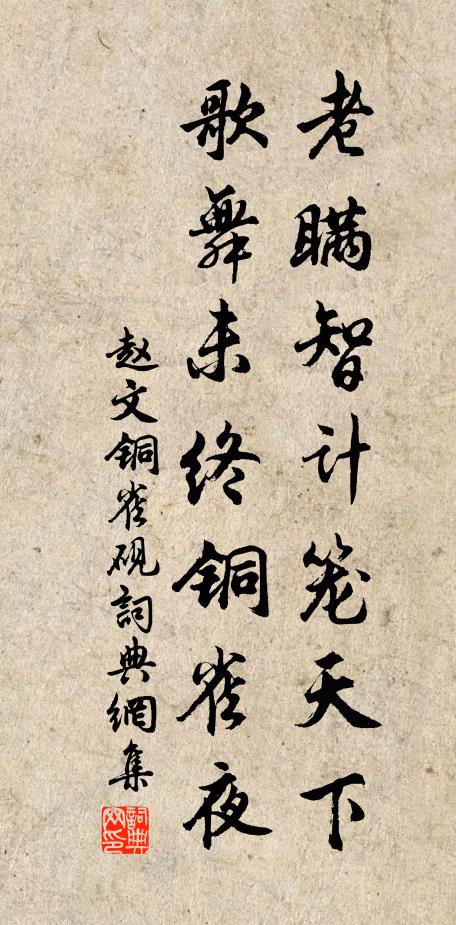 老瞒智计笼天下
歌舞未终铜雀夜
赵文铜雀砚詞典網集
詞典网印